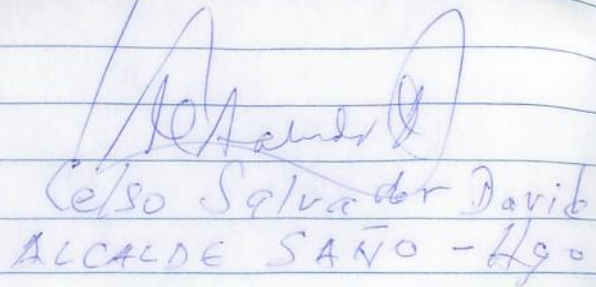 Celso Salvador David
ALCALDE SAÑO - Hyo